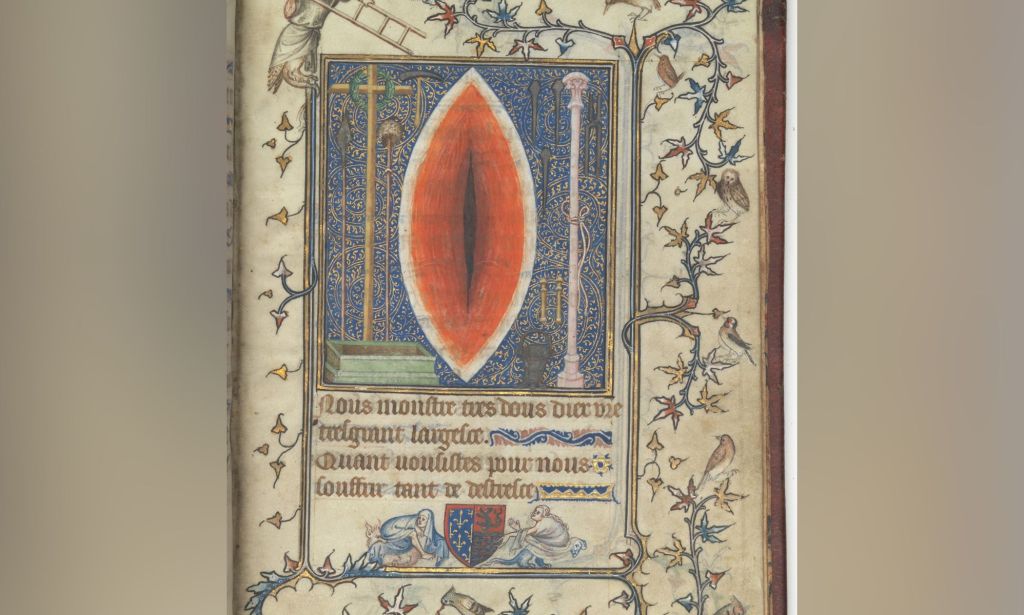 Nous monstre tres dous diex vre
tresgrant largesce.
Quant vousistes pour nous
souffrir tant de destresce